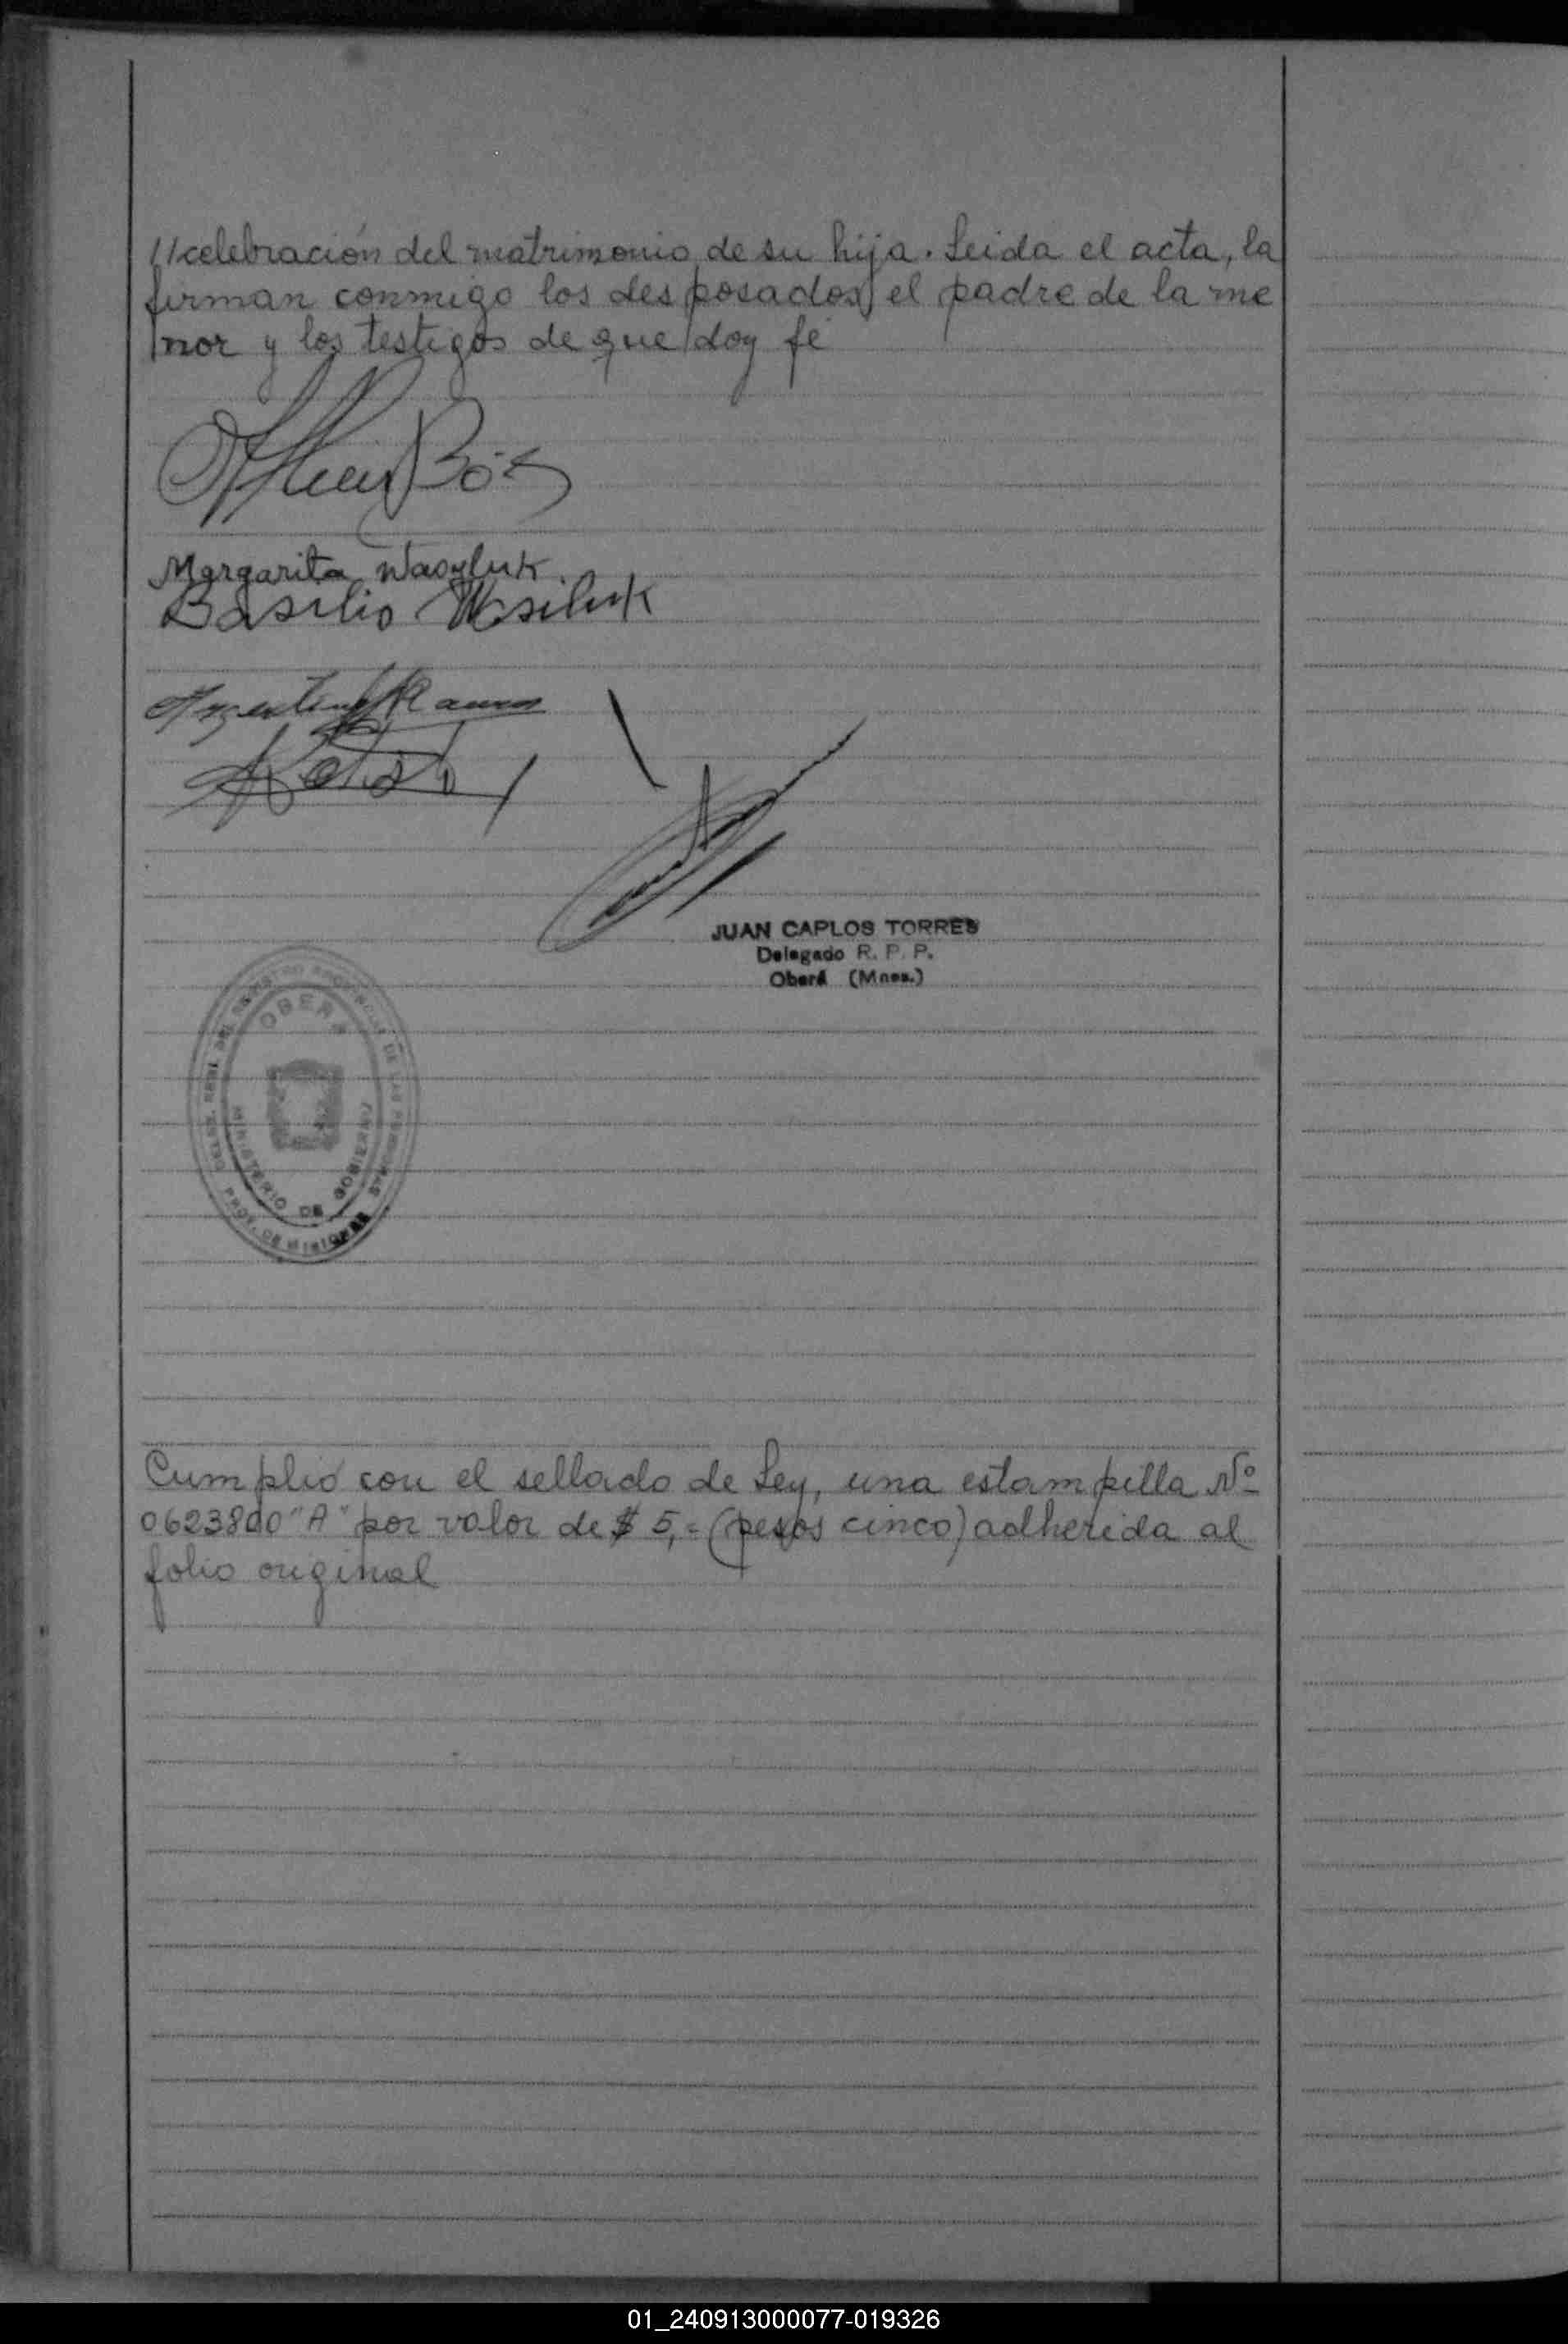 //celebración del matrimonio de su hija. Leida el acta, la
firman conmigo los desposados, el padre de la me
nor y los testigos de que doy fé
Margarita Wasyluk.
Basilio Wasiluk
JUAN CARLOS TORRES
Delegado R. P. P.
Oberá (Mnes.)
OBERA
MINISTERIO DE GOBIERNO
PROV. DE MISIONES
Cumplió con el sellado de Ley, una estampilla Nº
0623800 "A" por valor de $ 5,= (pesos cinco) adherida al
folio original
01_240913000077-019326